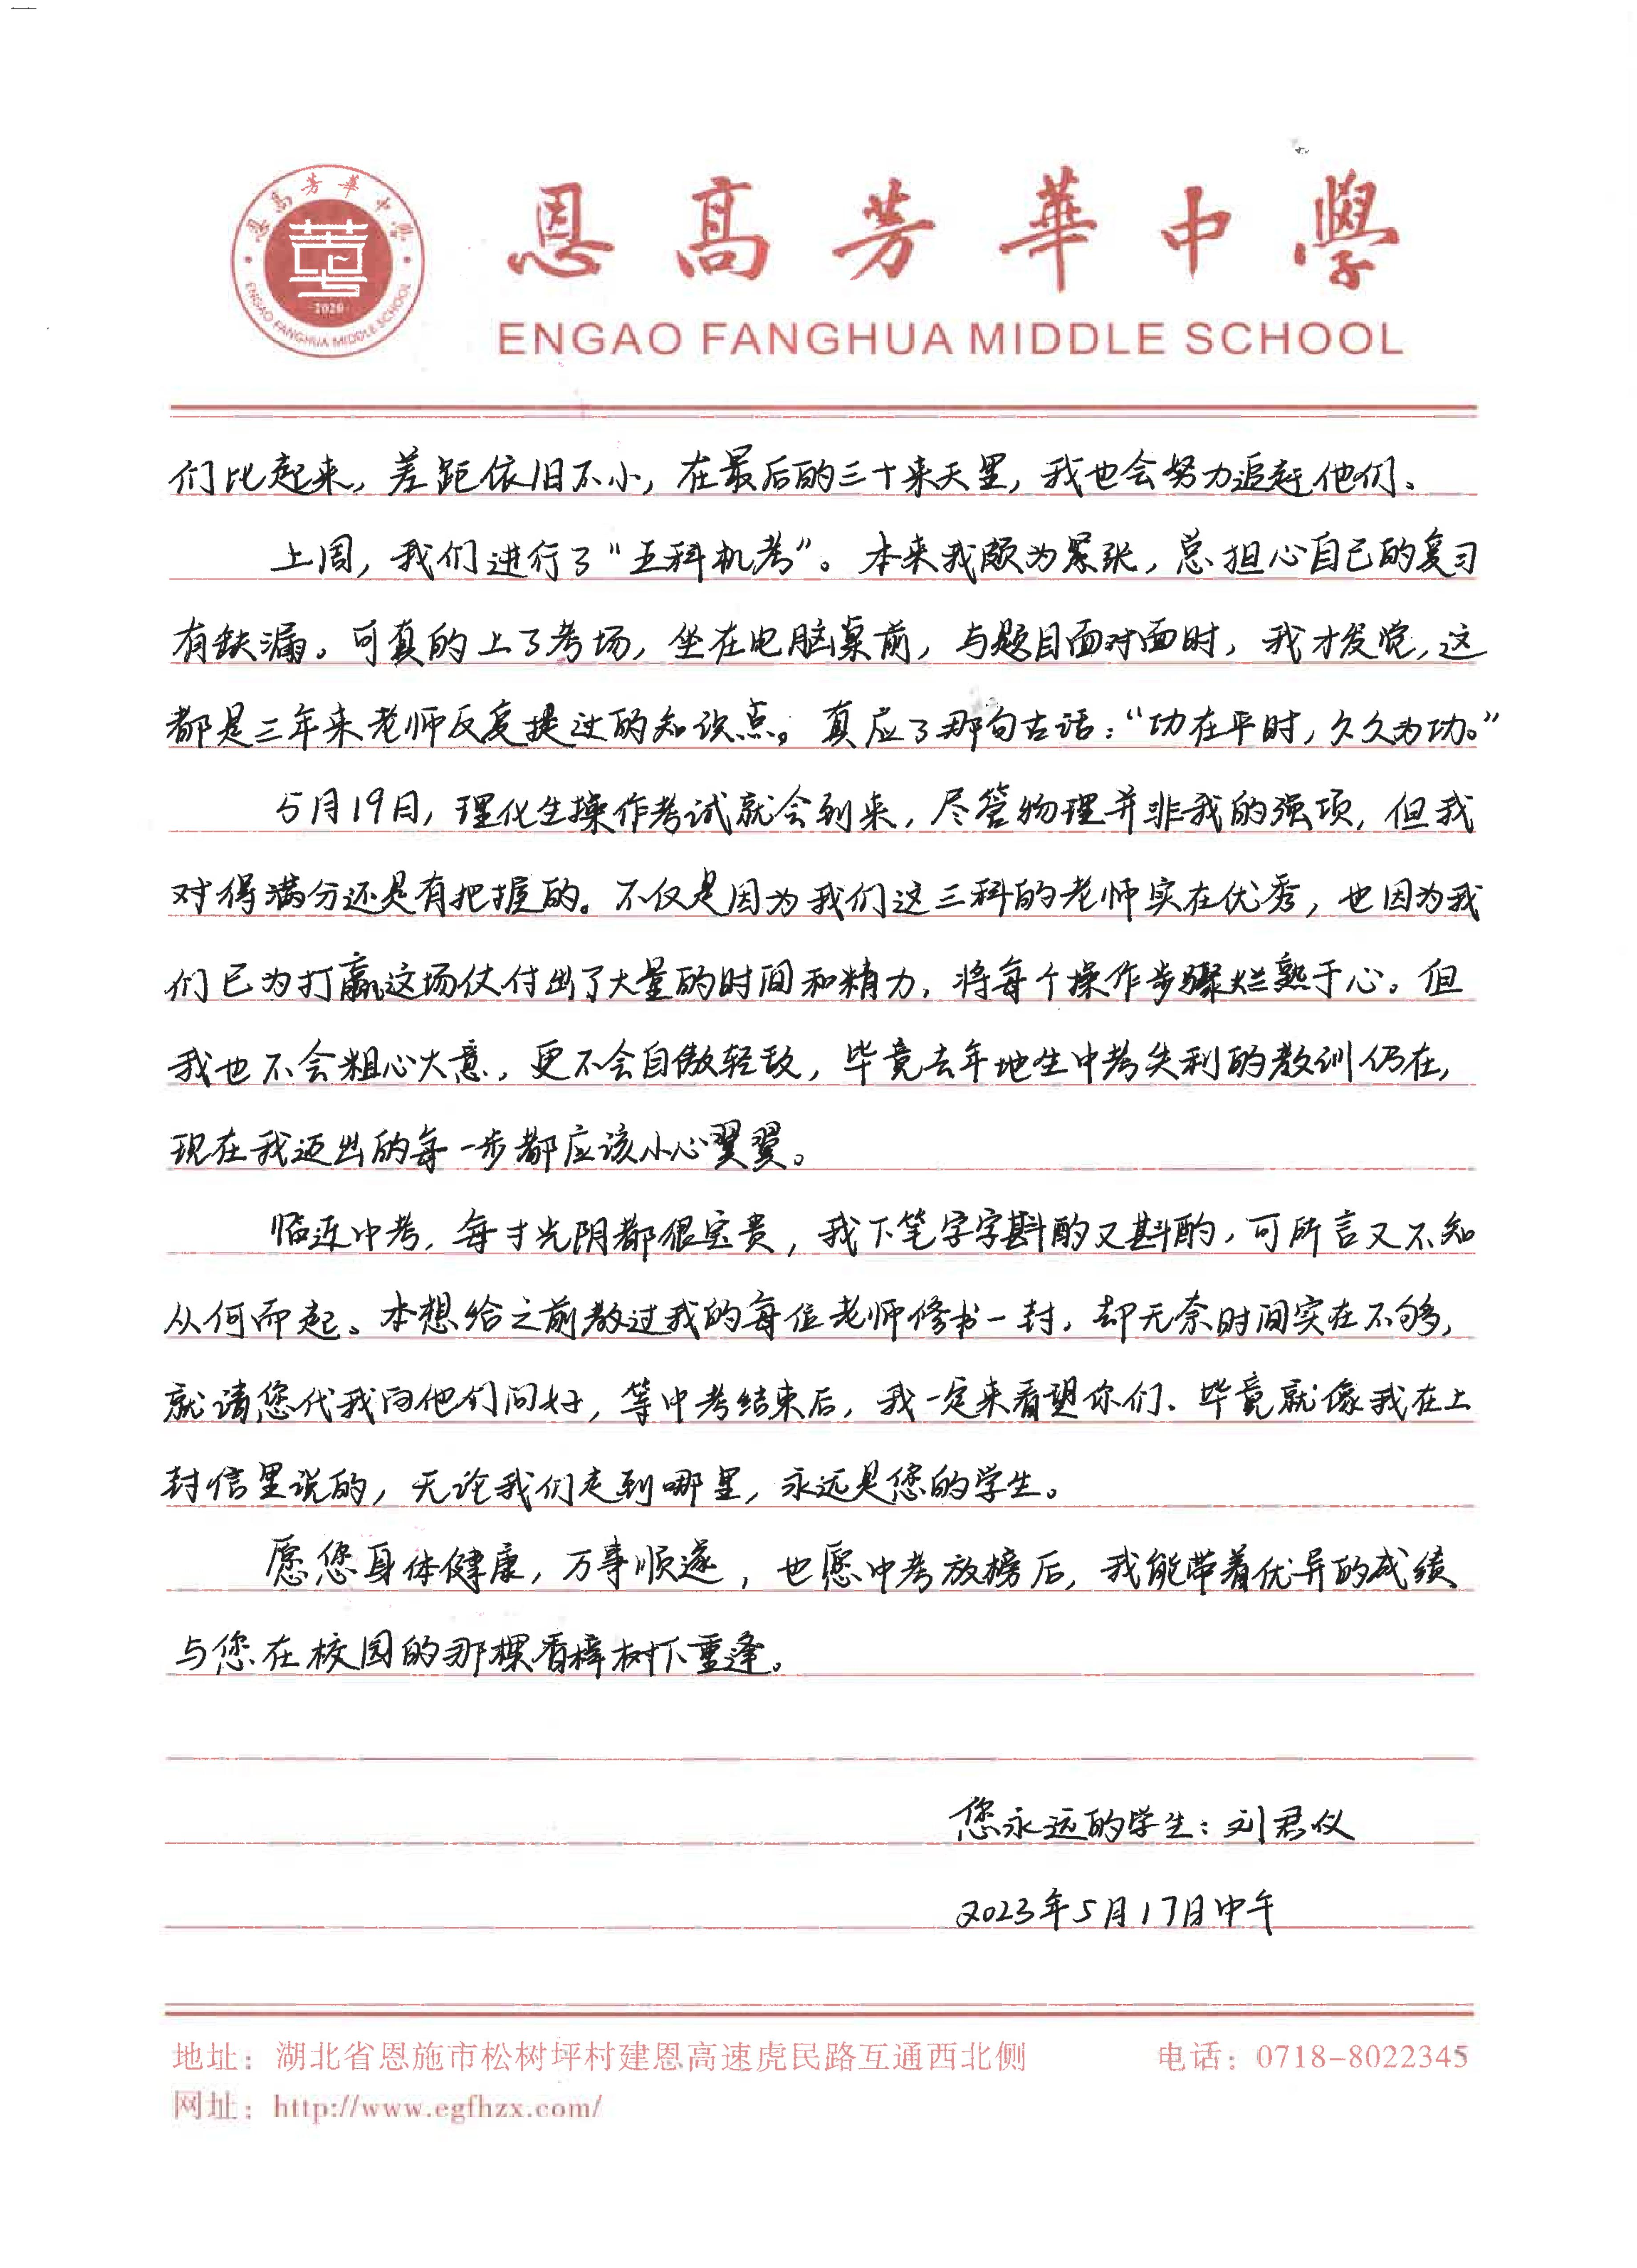 恩高芳華中學
ENGAO FANGHUA MIDDLE SCHOOL
恩高芳華中學
2020
ENGAO FANGHUA MIDDLE SCHOOL
们比起来，差距依旧不小，在最后的三十来天里，我也会努力追赶他们、
上周，我们进行了“五科机考”。本来我颇为紧张，总担心自己的复习
有缺漏。可真的上了考场，坐在电脑桌前，与题目面对面时，我才发觉，这
都是三年来老师反复提过的知识点。真应了那句古话：“功在平时，久久为功。”
5月19日，理化生操作考试就会到来，尽管物理并非我的强项，但我
对得满分还是有把握的。不仅是因为我们这三科的老师实在优秀，也因为我
们已为打赢这场仗付出了大量的时间和精力，将每个操作步骤烂熟于心。但
我也不会粗心大意，更不会自傲轻敌，毕竟去年地生中考失利的教训仍在，
现在我迈出的每一步都应该小心翼翼。
临近中考，每寸光阴都很宝贵，我下笔字字斟酌又斟酌，可所言又不知
从何而起。本想给之前教过我的每位老师修书一封，却无奈时间实在不够，
就请您代我向他们问好，等中考结束后，我一定来看望你们、毕竟就像我在上
封信里说的，无论我们走到哪里，永远是您的学生。
愿您身体健康，万事顺遂，也愿中考放榜后，我能带着优异的成绩
与您在校园的那棵香樟树下重逢。
您永远的学生：刘君仪
2023年5月17日中午
地址：湖北省恩施市松树坪村建恩高速虎民路互通西北侧 电话：0718-8022345
网址：http://www.egfhzx.com/